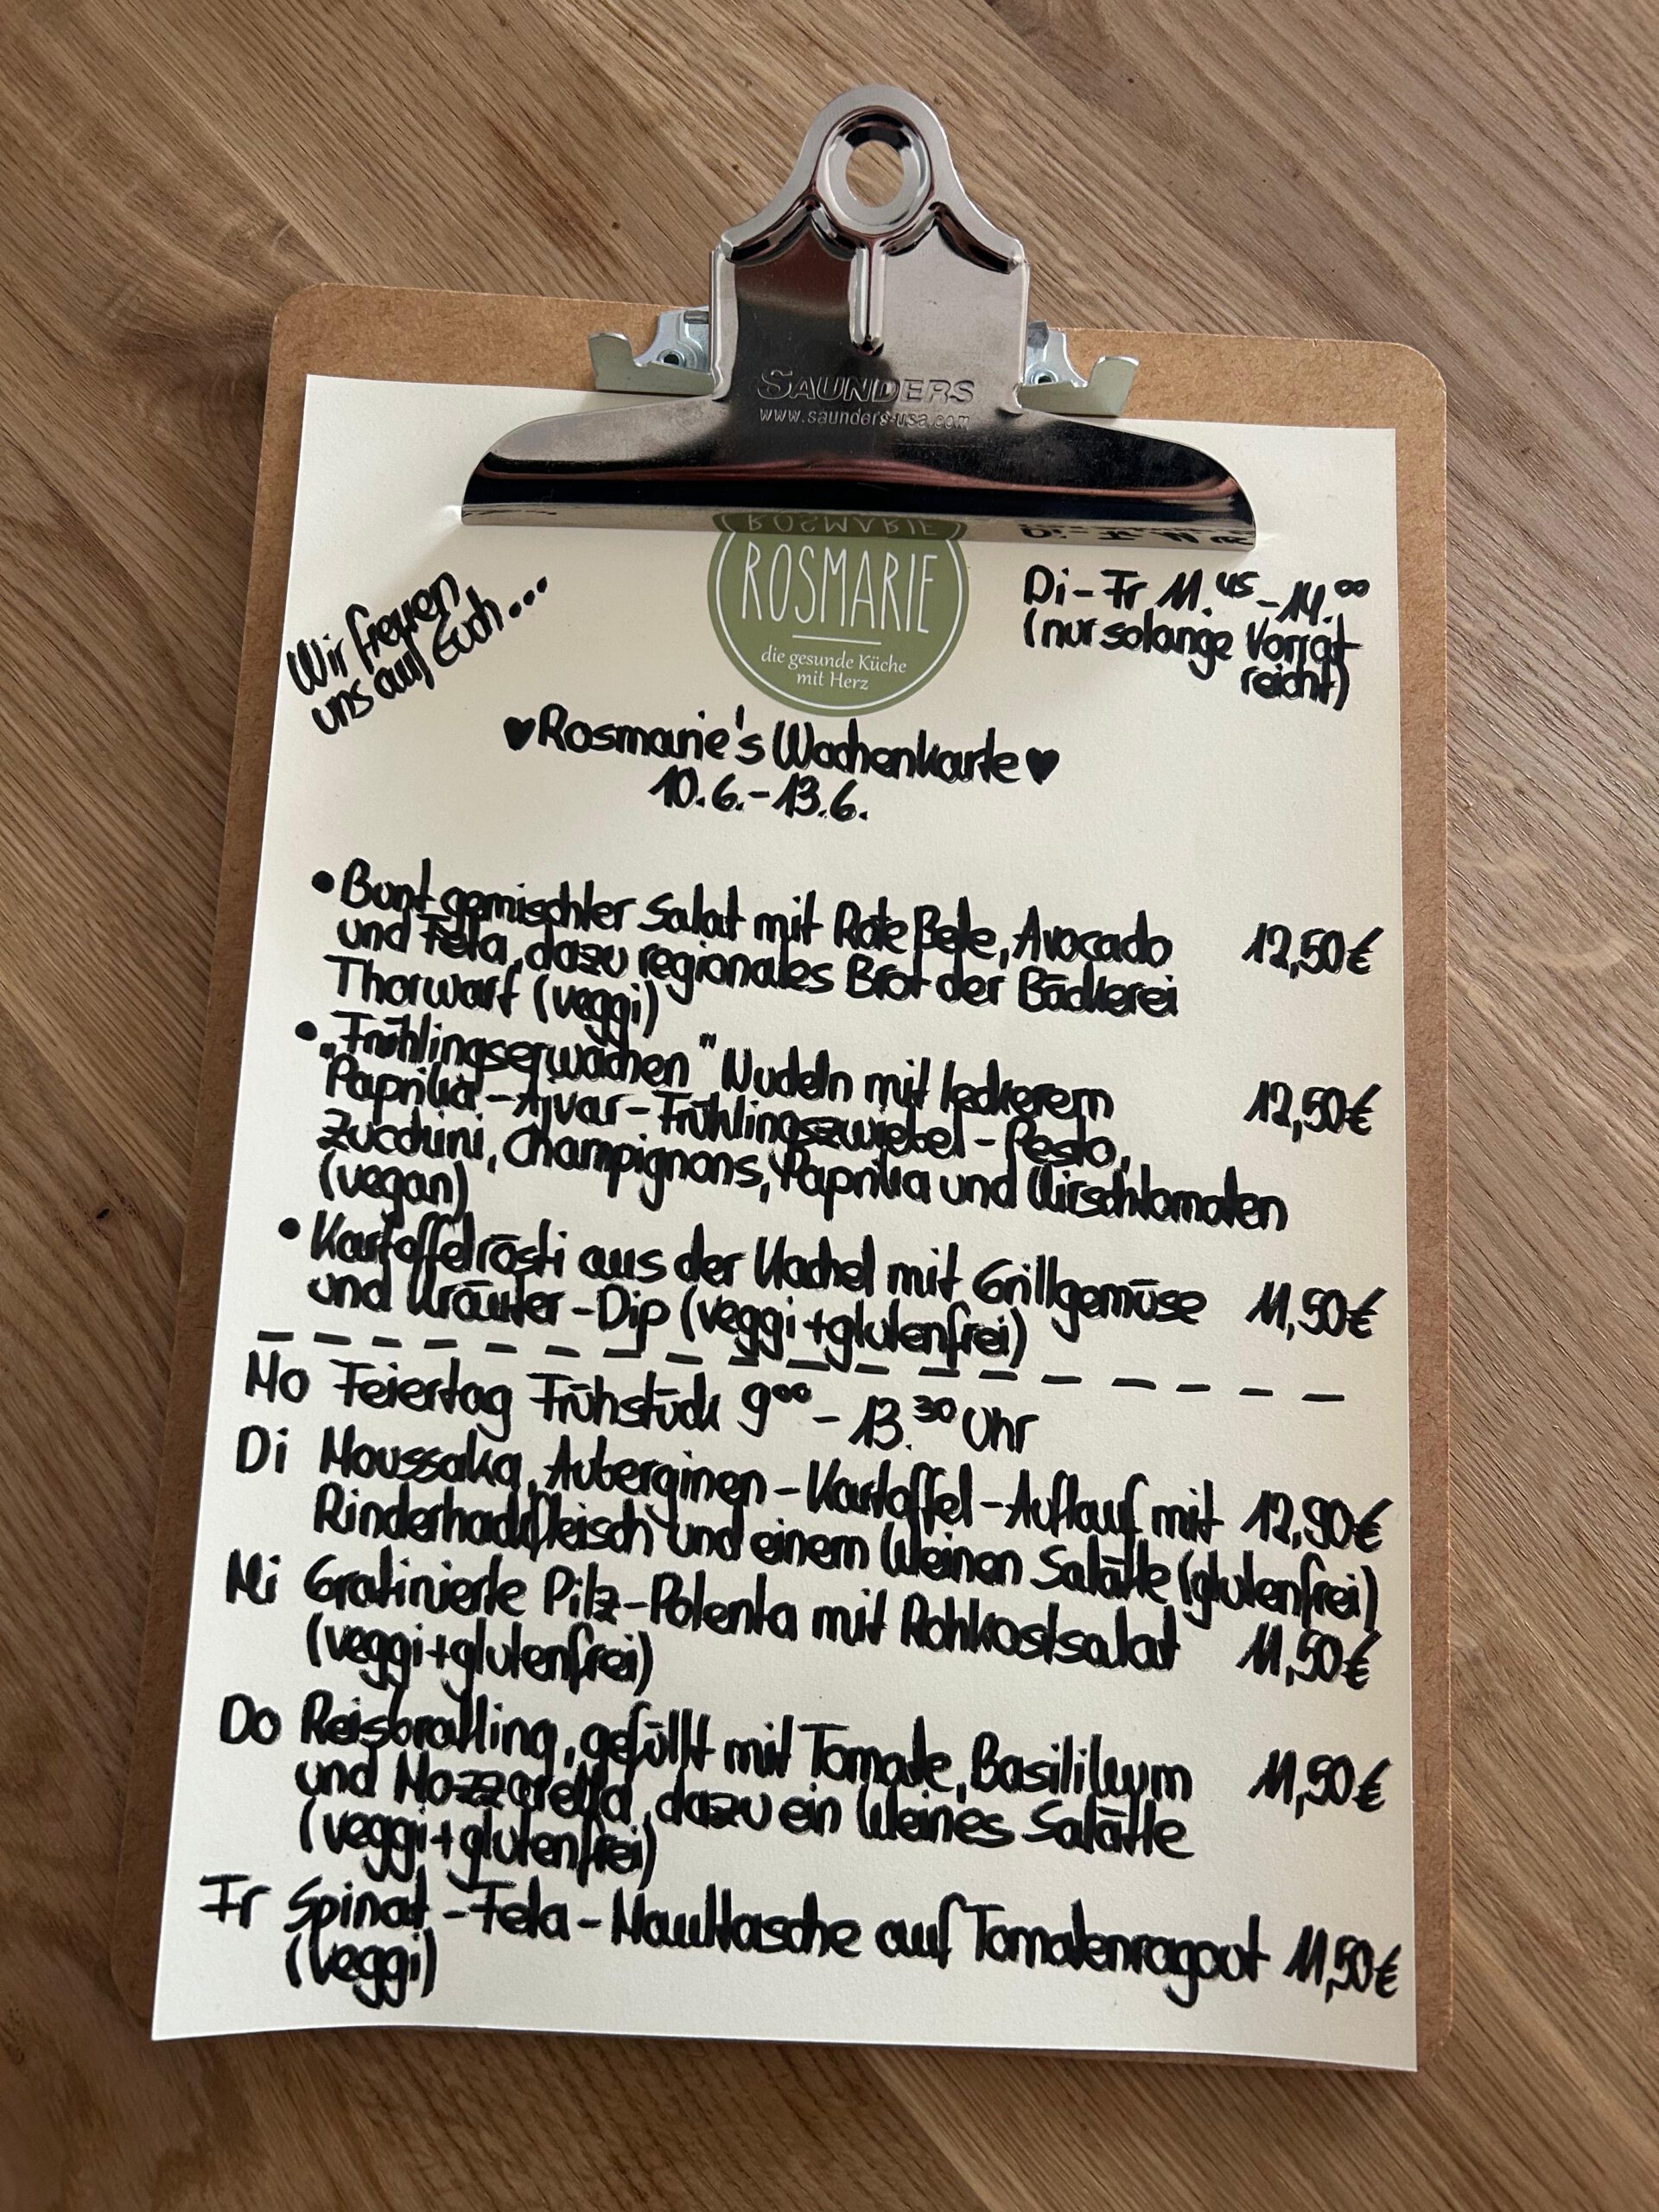 SAUNDERS
www.saunders-usa.com
ROSMARIE
die gesunde Küche
mit Herz
Wir freuen
uns auf Euch...
Di-Fr 11.45-14.00
(nur solange Vorrat
reicht)
♥Rosmarie's Wochenkarte♥
10.6.-13.6.
•Bunt gemischter Salat mit Rote Bete, Avocado 12,50€
und Feta, dazu regionales Brot der Bäckerei
Thorwart (veggi)
•„Frühlingserwachen" Nudeln mit leckerem 12,50€
Paprika-Ajvar-Frühlingszwiebel-Pesto,
Zucchini, Champignons, Paprika und Kirschtomaten
(vegan)
•Kartoffelrösti aus der Kachel mit Grillgemüse 11,50€
und Kräuter-Dip (veggi+glutenfrei)
Mo Feiertag Frühstück 9.00-13.30 Uhr
Di Moussaka, Auberginen-Kartoffel-Auflauf mit 12,90€
Rinderhackfleisch und einem kleinen Salätle (glutenfrei)
Mi Gratinierte Pilz-Polenta mit Rohkostsalat 11,50€
(veggi+glutenfrei)
Do Reisbratling, gefüllt mit Tomate, Basilikum 11,50€
und Mozzarella, dazu ein kleines Salätle
(veggi+glutenfrei)
Fr Spinat-Feta-Maultasche auf Tomatenragout 11,50€
(veggi)